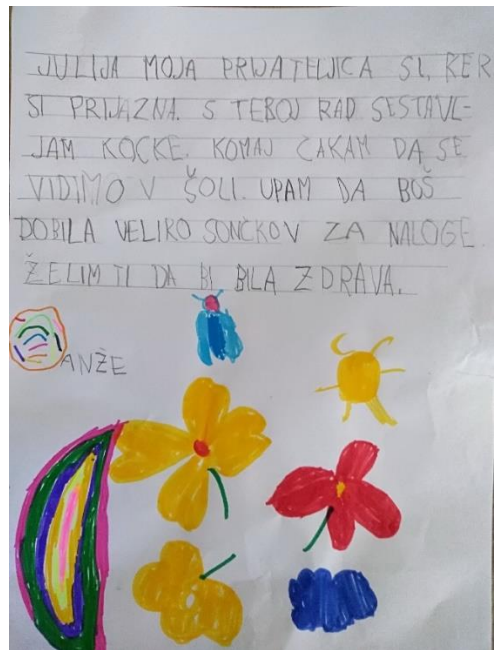 JULIJA MOJA PRIJATELJICA SI, KER
SI PRIJAZNA. S TEBOJ RAD SESTAVL-
JAM KOCKE. KOMAJ ČAKAM DA SE
VIDIMO V ŠOLI. UPAM DA BOŠ
DOBILA VELIRO SONČKOV ZA NALOGE.
ŽELIM TI DA BI BILA ZDRAVA.
ANŽE